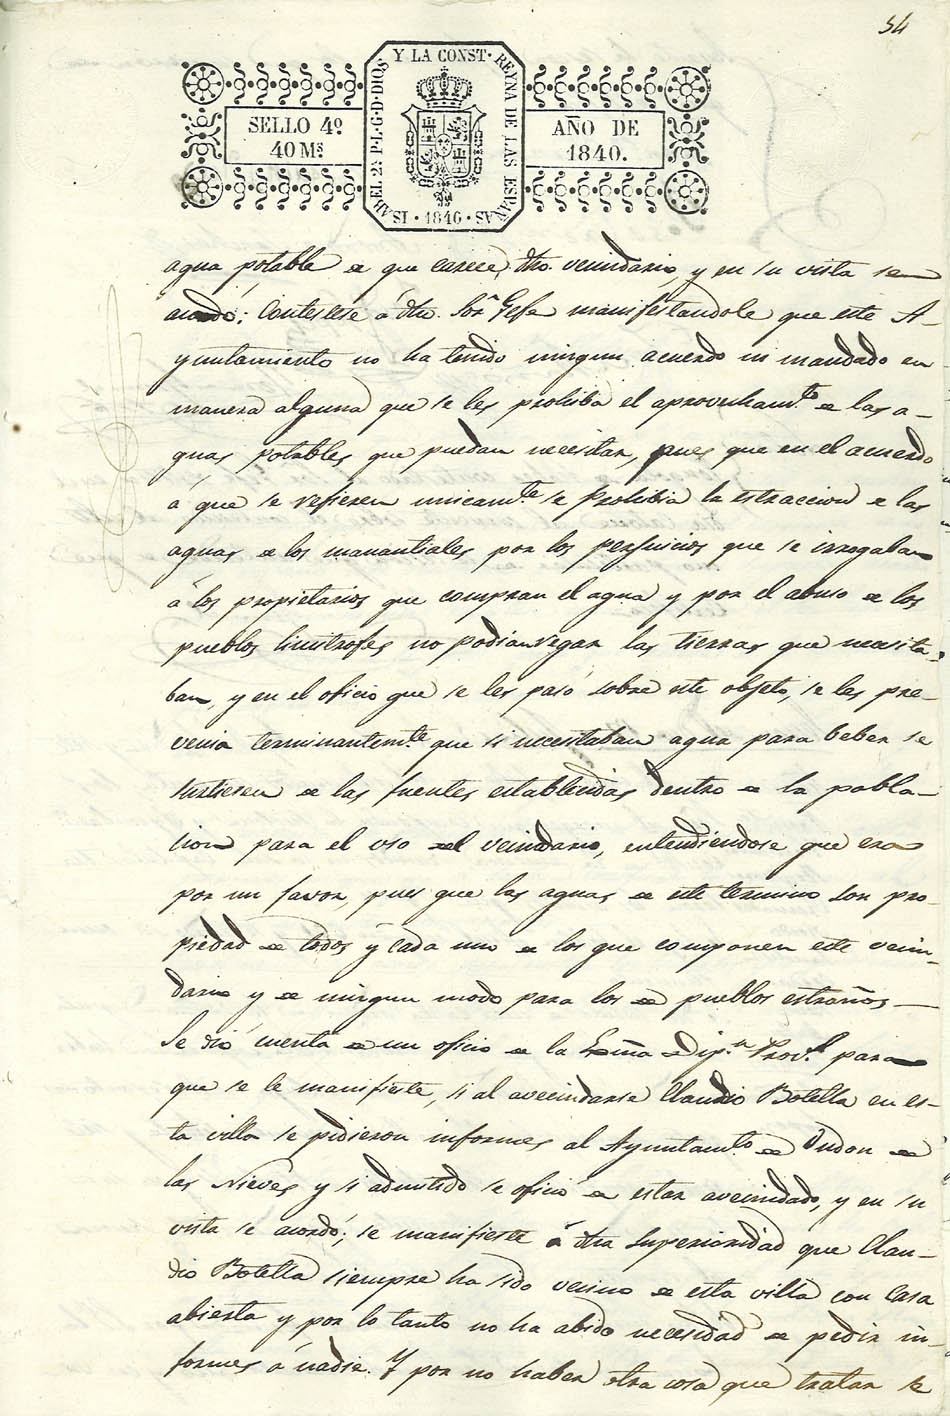 54
Y LA CONST. REYNA DE LAS ESPAÑAS
ISABEL 2ª P.L.G.D.DIOS
SELLO 4º
40 Mˢ
AÑO DE
1840.
1840
agua potable de que carece dho. vecindario, y en su vista se
acordó: Contestese á dho. Sor. Gefe manifestandole que este A-
yuntamiento no ha tenido ningun acuerdo ni mandado en
manera alguna que se les prohiba el aprovechamto. de las a-
guas potables que puedan necesitar, pues que en el acuerdo
á que se refieren unicamte. se prohibia la estraccion de las
aguas de los manantiales por los perjuicios que se irrogaban
á los propietarios que compran el agua y por el abuso de los
pueblos limitrofes no podian regar las tierras que necesita-
ban, y en el oficio que se les pasó sobre este objeto, se les pre-
venia terminantemte. que si necesitaban agua para beber se
surtiesen de las fuentes establecidas dentro de la pobla-
cion para el uso del vecindario, entendiendose que era
por un favor, pues que las aguas de este termino son pro-
piedad de todos y cada uno de los que componen este vecin-
dario y de ningun modo para los de pueblos estraños
Se dió cuenta de un oficio de la Exma. Dipn. Provl. para
que se le manifieste, si al avecindarse Claudio Botella en es-
ta villa se pidieron informes al Ayuntamto. de de
las Nieves y si admitido se ofició de estar avecindado, y en su
vista se acordó; se manifieste á dha superioridad que Clau-
dio Botella siempre ha sido vecino de esta villa con Casa
abierta y por lo tanto no ha abido necesidad de pedir in-
formes á nadie. Y por no haber otra cosa que tratar se